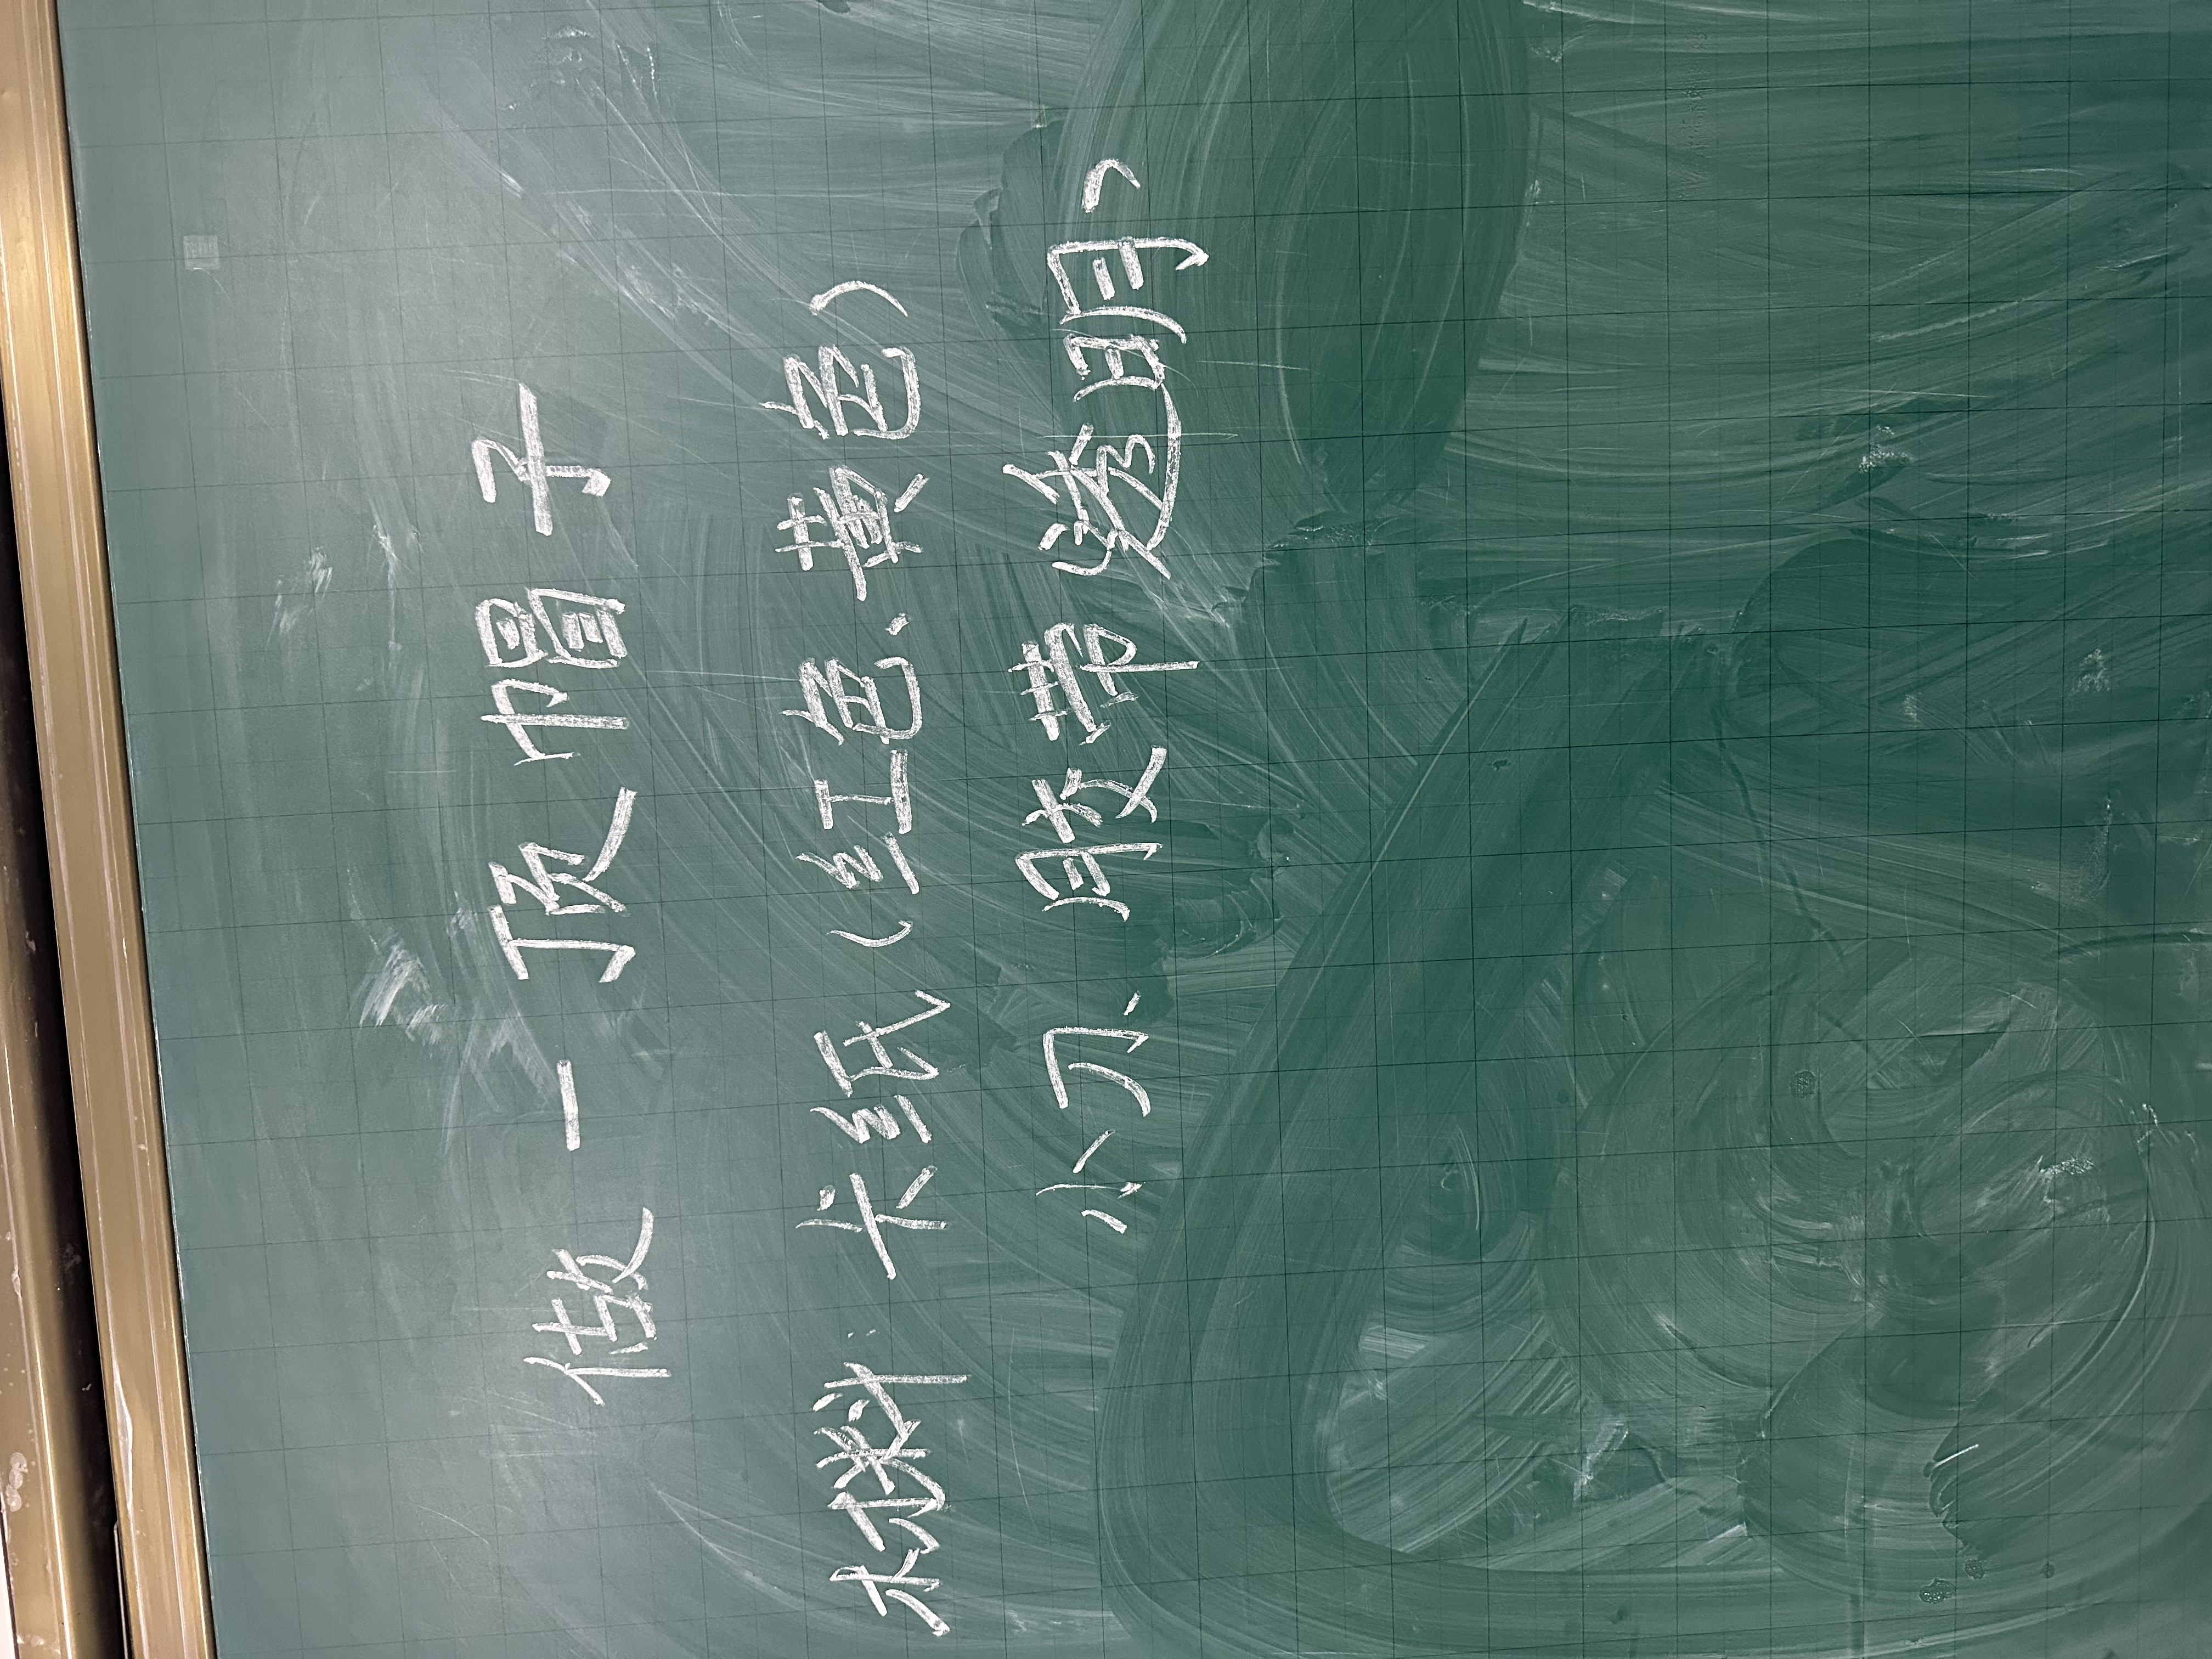 做一顶帽子
材料:卡纸(红色、黄色)
小刀、胶带 透明)